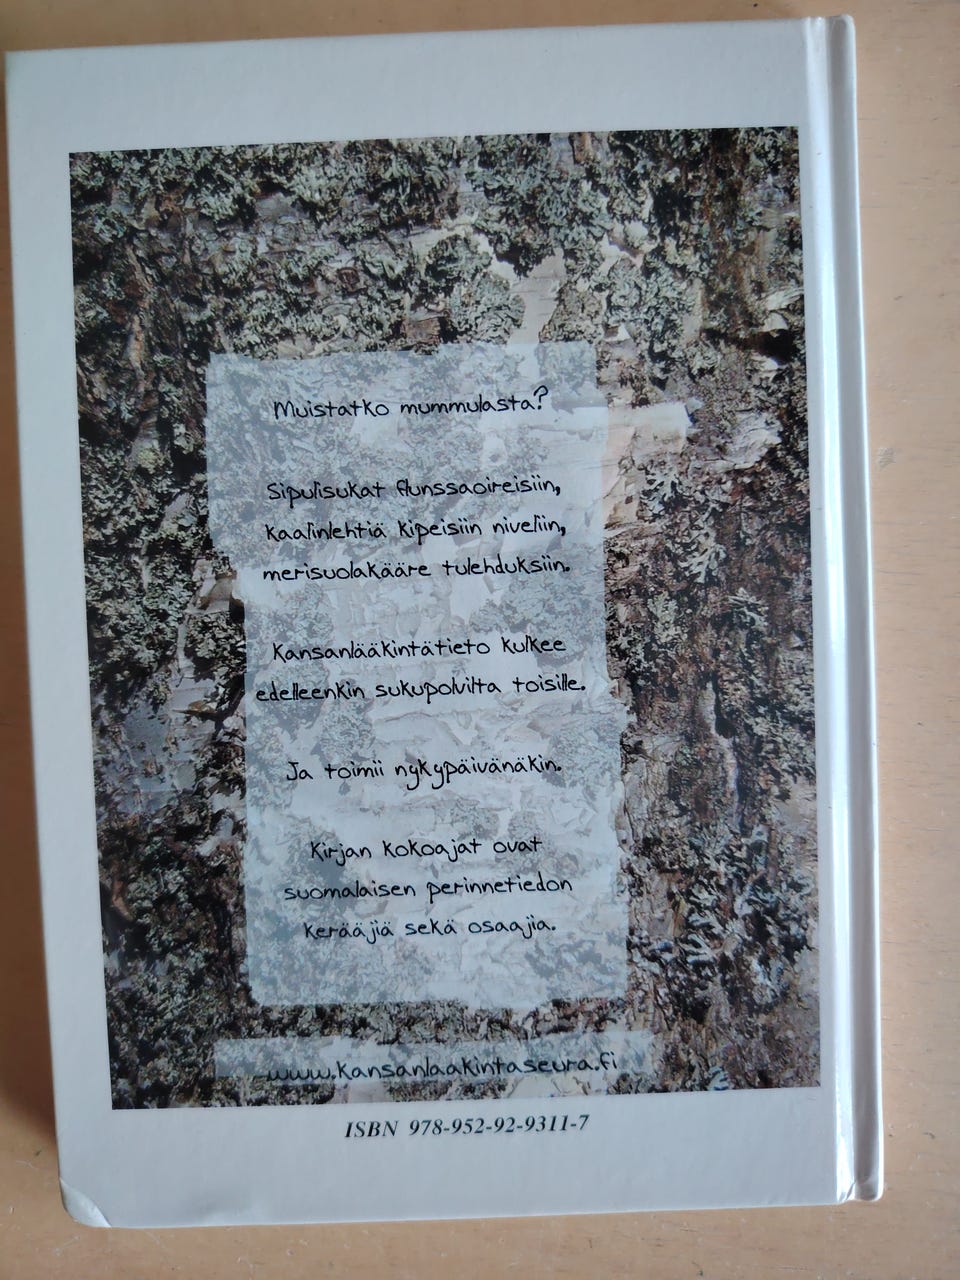 Muistatko mummulasta?
Sipulisukat flunssaoireisiin,
kaalinlehtiä kipeisiin niveliin,
merisuolakääre tulehduksiin.
Kansanlääkintätieto kulkee
edelleenkin sukupolvilta toisille.
Ja toimii nykypäivänäkin.
Kirjan kokoajat ovat
suomalaisen perinnetiedon
kerääjiä sekä osaajia.
www.kansanlaakintaseura.fi
ISBN 978-952-92-9311-7